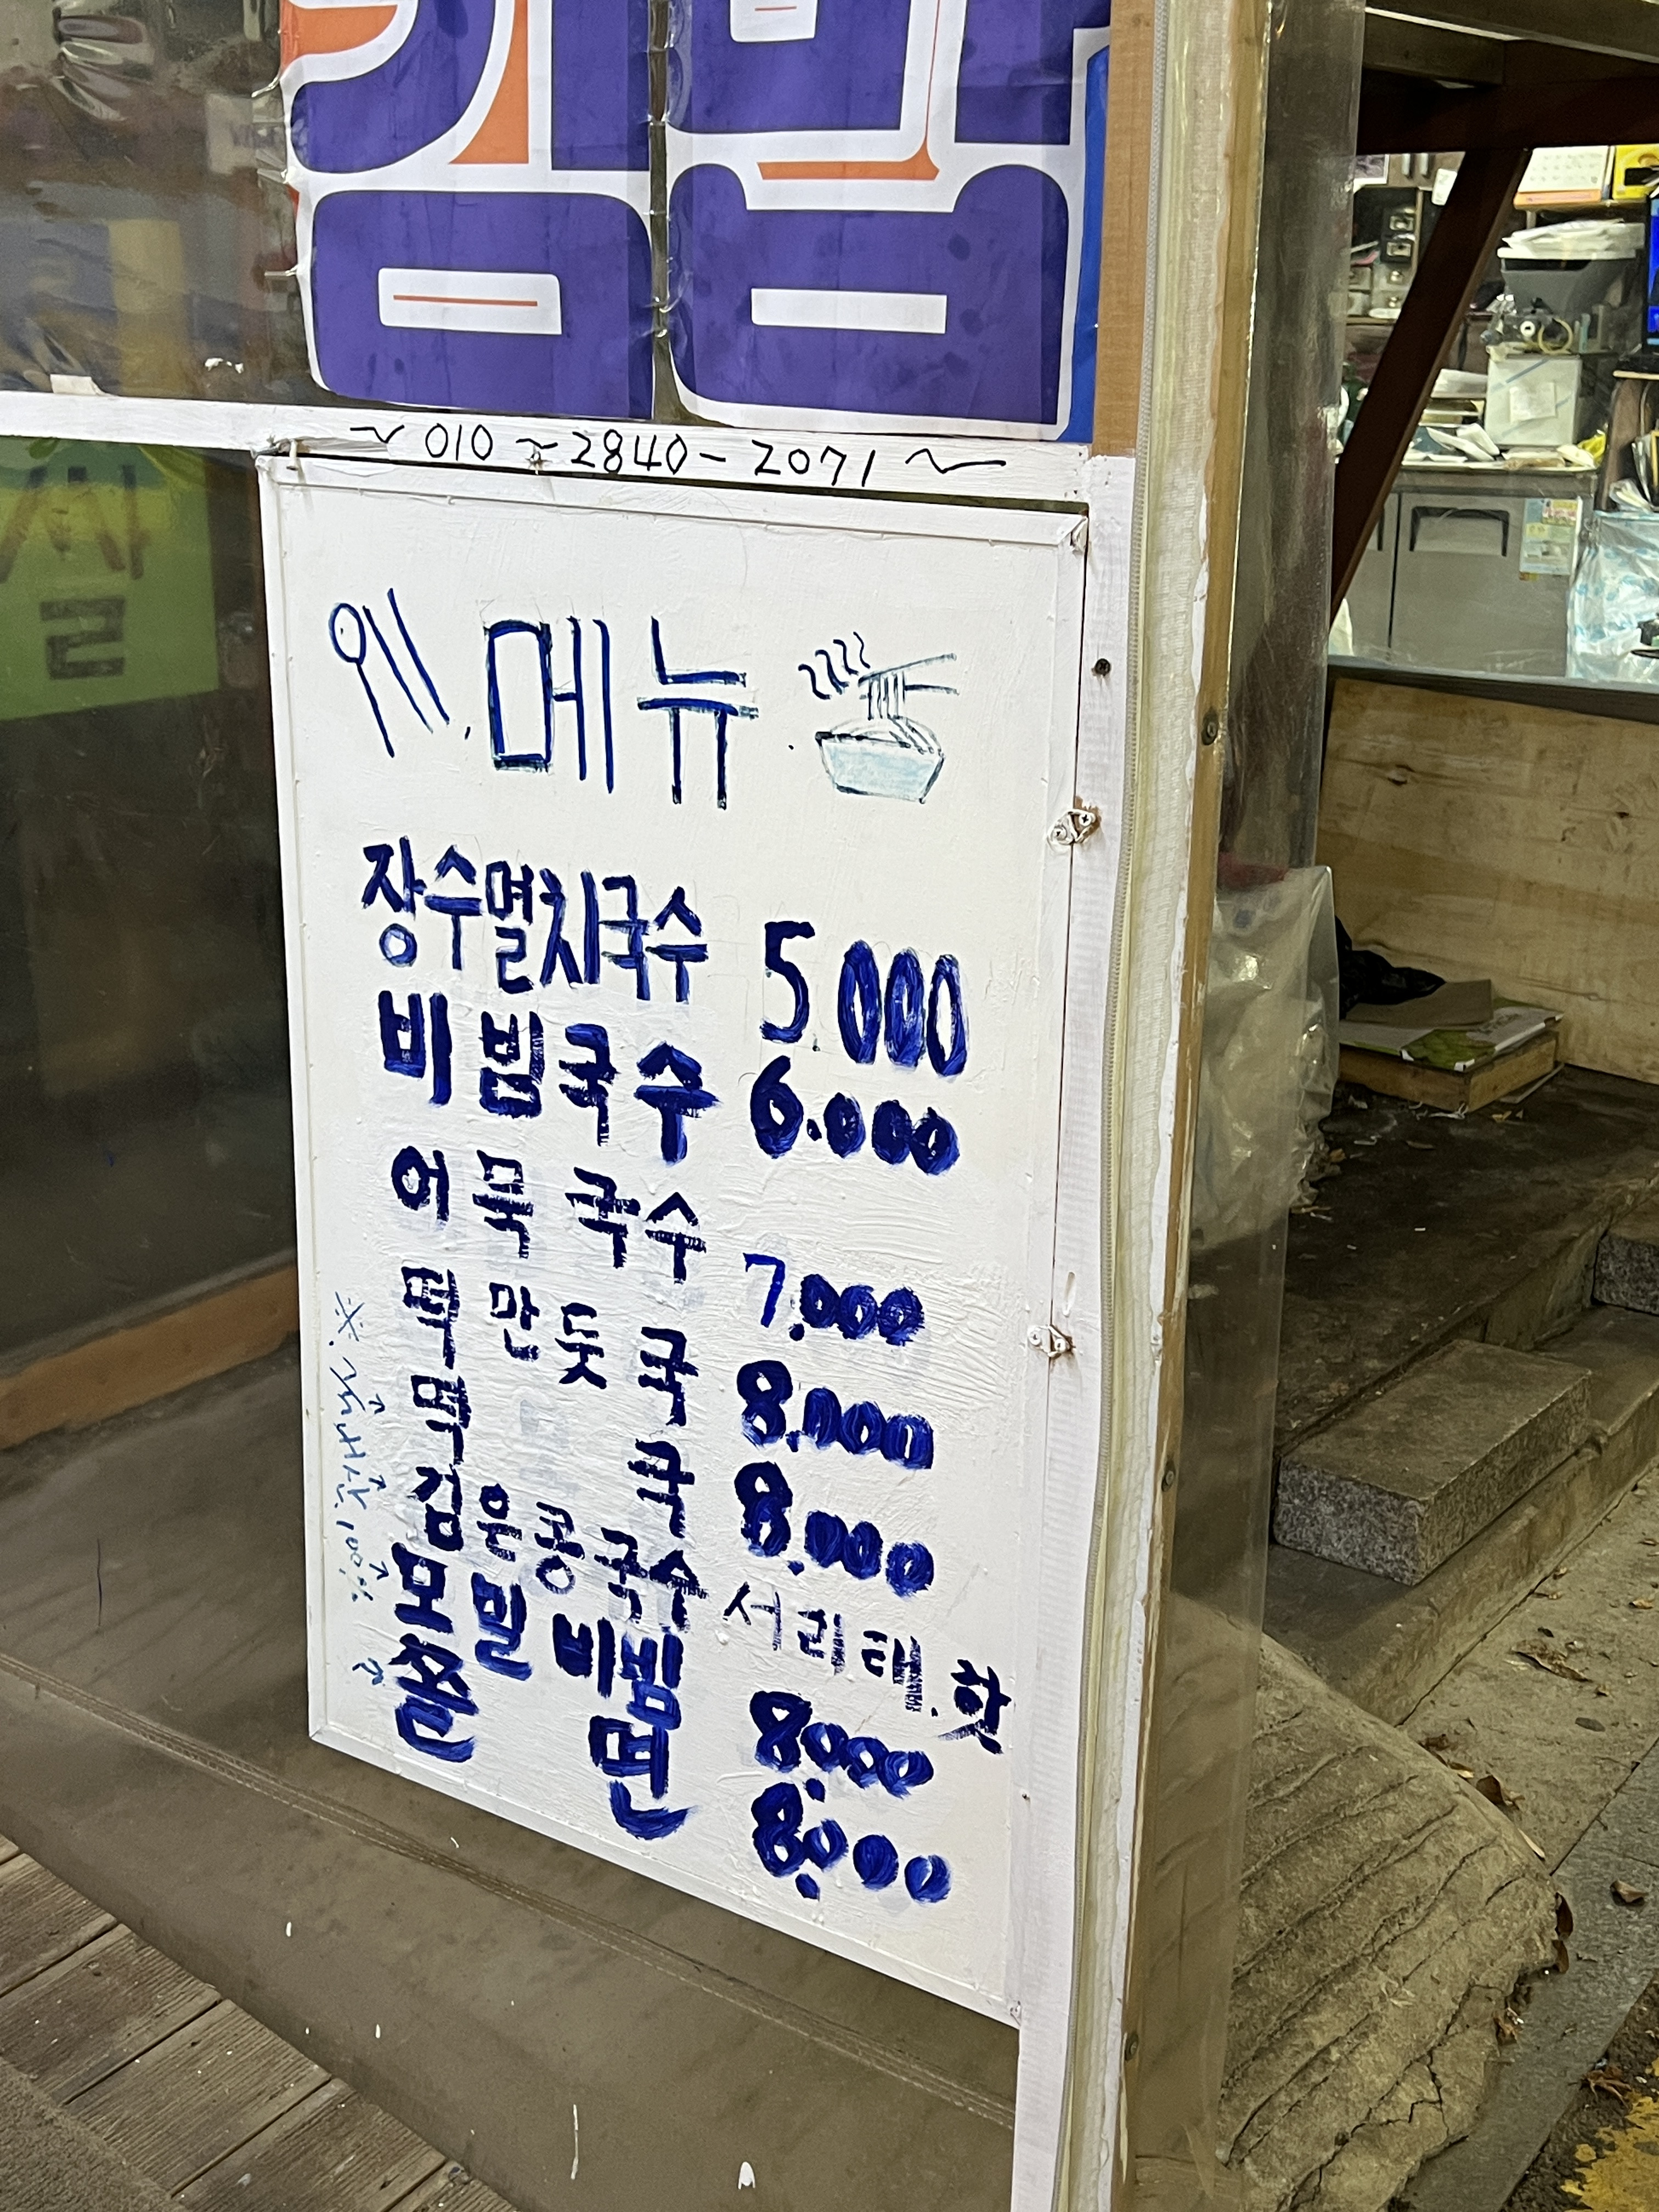 김밥
~ 010 ~ 2840 - 2071 ~
메뉴
장수멸치국수 5.000
비빔국수 6.000
어묵국수 7.000
떡만둣국 8.000
떡국 8.000
검은콩국수 서리태.핫
모밀비빔 8.000
쫄면 8.000